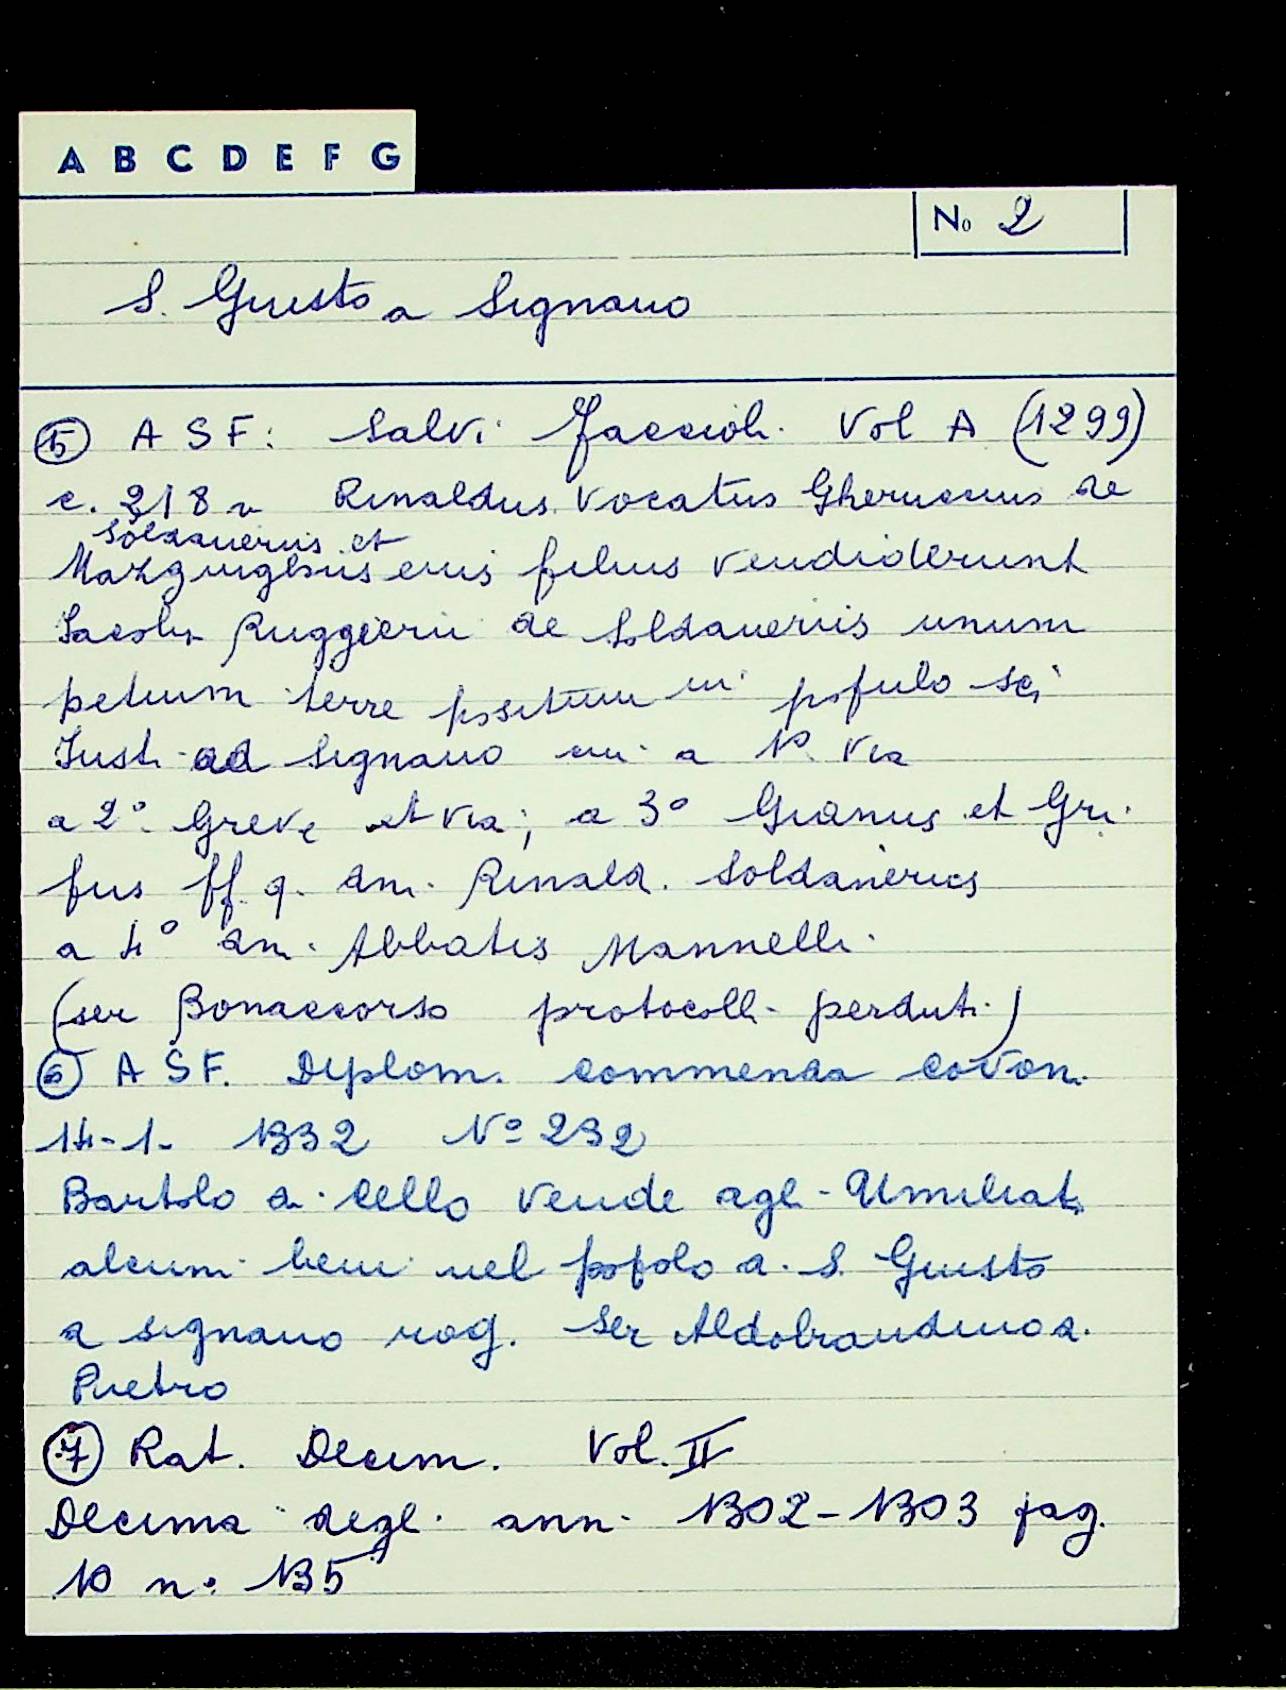 A B C D E F G
No 2
S. Giusto a Signano
5 A S F: Salvi Jaccioli. Vol A (1299)
c. 218 v Rinaldus vocatus Gheruccius de
Soldaneriis et
filius vendiderunt
Iacobi Ruggierii de Soldaneriis unum
petium terre positum in populo sci
Iusti ad Signano cui a 1º via
a 2º Greve et via; a 3º Gianus et Gri
fus ff. q. dni. Rinald. Soldanerius
a 4º dni. Abbatis Mannelli.
(ser Bonaccorso protocolli perduti)
6 A S F. Diplom. commenda Covon.
14-1- 1332 Nº 232
Bartolo di Cello vende agli Umiliati
alcuni beni nel popolo di S. Giusto
a Signano rog. Ser Aldobrandino di
Pietro
7 Rat. Decim. Vol. II
Decima degli anni 1302-1303 pag.
10 n. 135